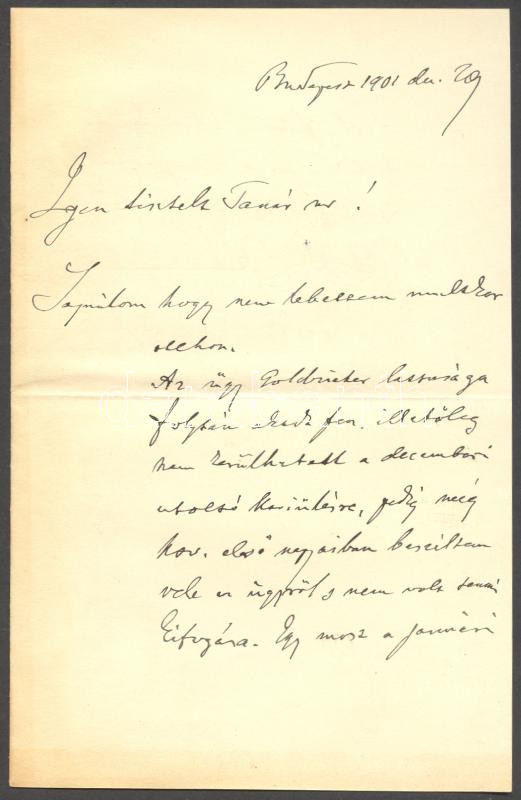 Budapest 1901 dec. 29
Igen tisztelt Tanár ur!
Sajnálom hogy nem lehettem multkor
otthon.
Az ügy Goldzieher lassusága
folytán akadt fen, illetőleg
nem kerülhetett a decemberi
utolsó kari ülésre, pedig még
nov. első napjaiban beszéltem
vele az ügyről s nem volt semmi
kifogása. Igy most a januári